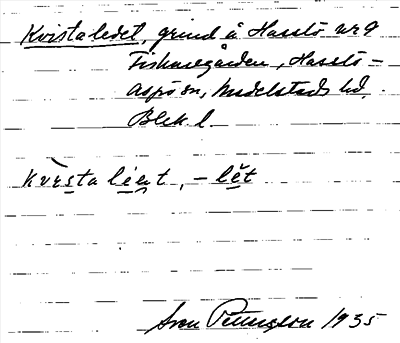 Kvistaledet, grind å Hasslö nr 9
Fiskaregården, Hasslö-
Aspö sn, Medelstads hd.
Blek. l.
kvìsta léat, -lĕt
Sven Petersson 1935